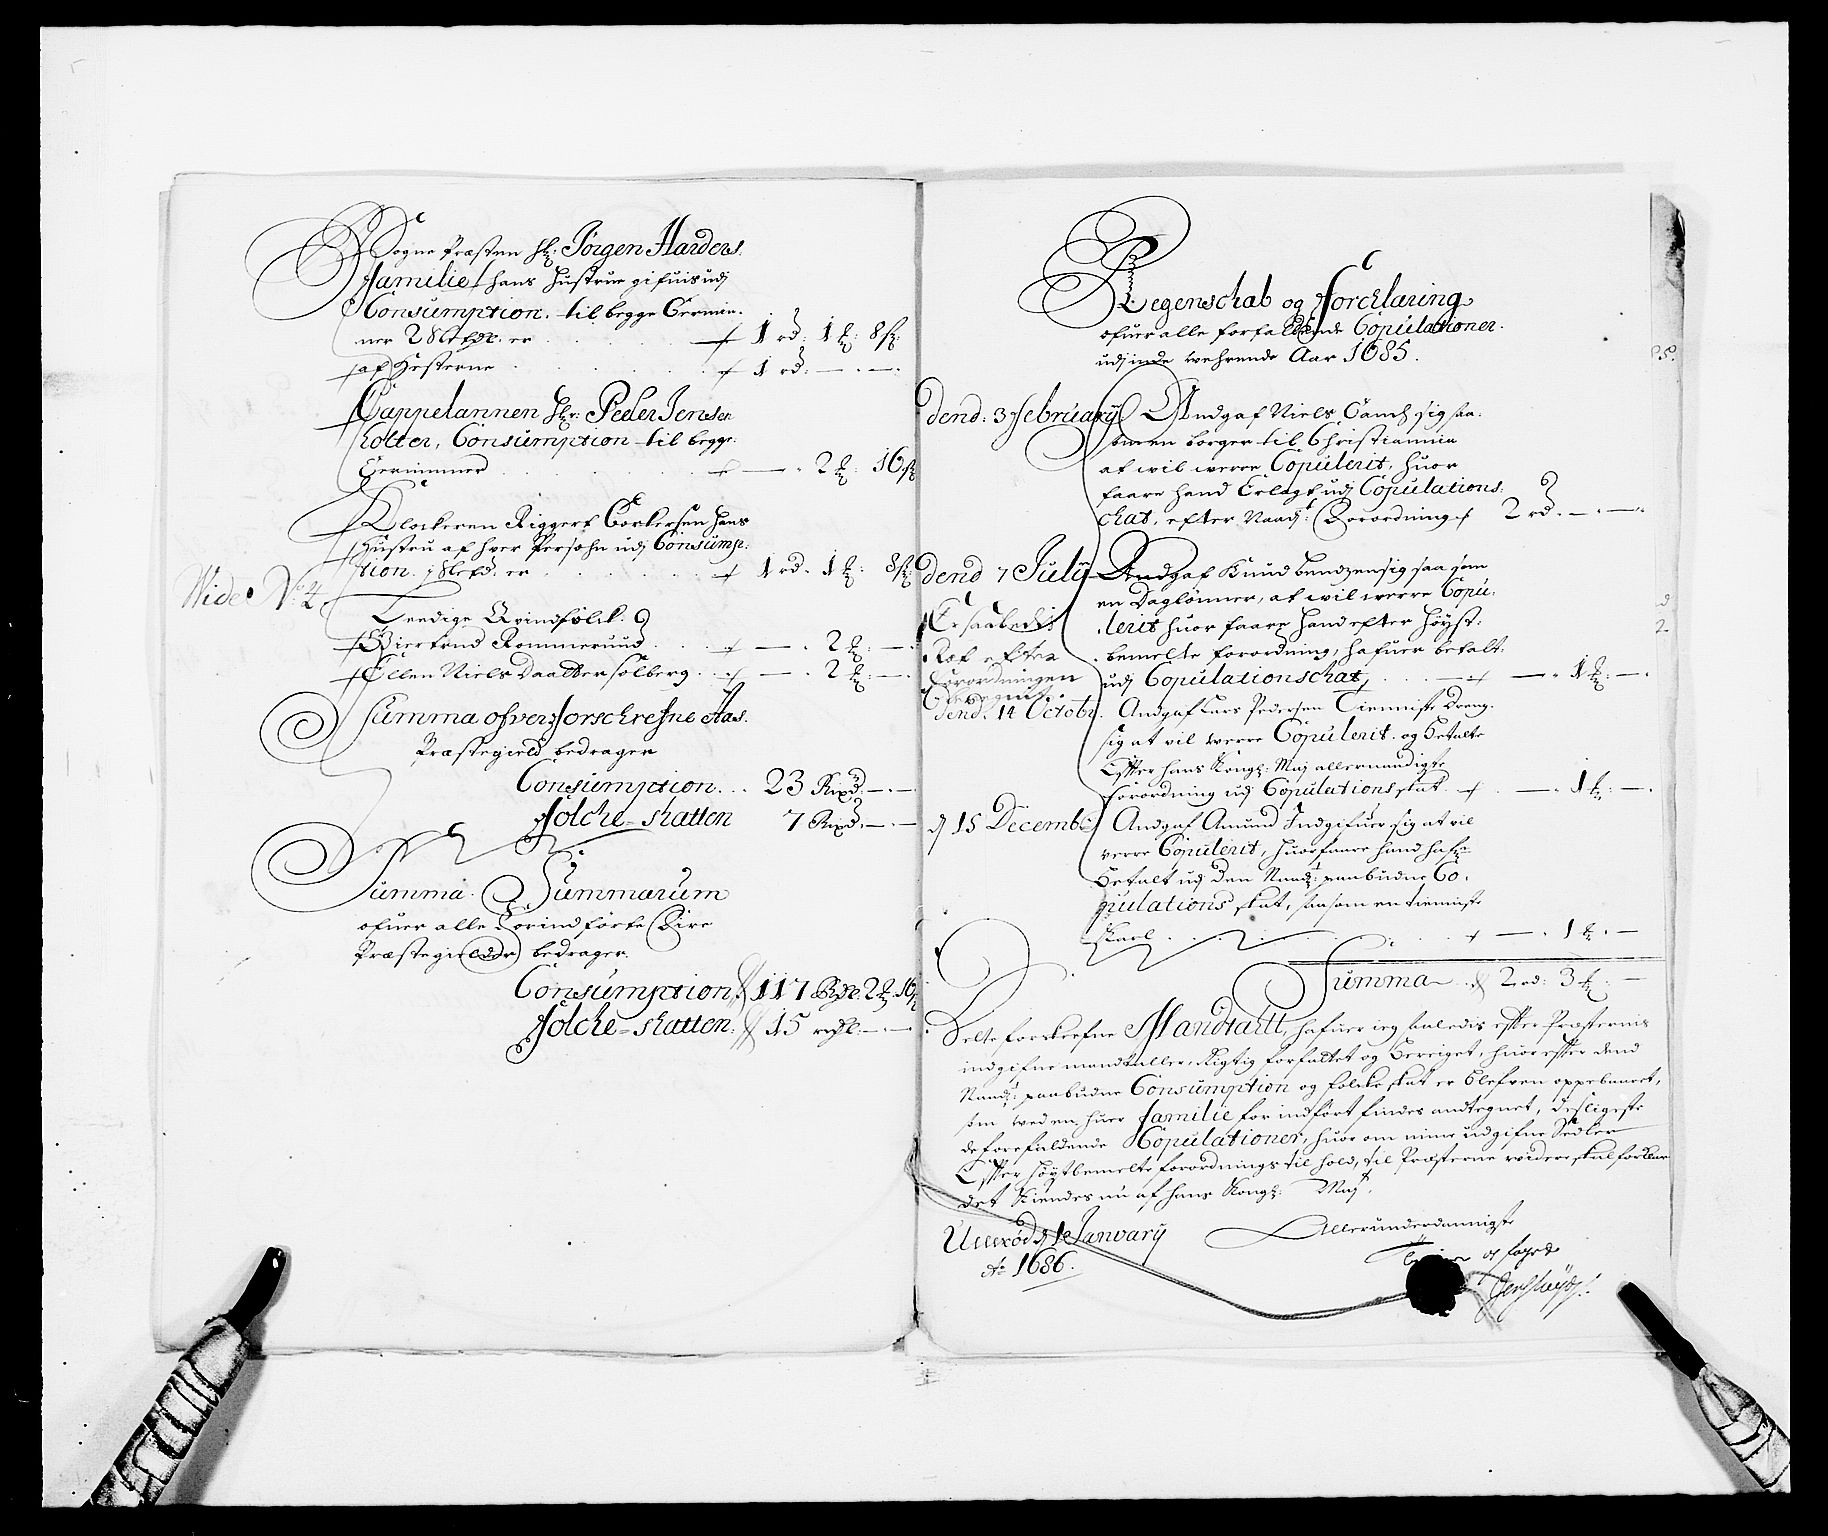 Sogne Præsten Hr: Jörgen Harders
familie hans Hustrue gifuis udj
Consumption, til begge Termin:
ner 28 er 1 rd: 1 8
af Hesterne 1 rd: — —
Cappelannen Hr: Peder Jensen
Kolter, Consumption til begge
Terminner — 2 16
Klockeren Riggert hans
Hustru af hver Persohn udj Consump:
tion er 1 rd. 1 8
Wide No: 4
Leedige Qvindfolck.
Giertrud Rommerund — 2 —
Ellen Niels Daatter Solberg — 2 —
Summa ofver forschrefne Aas
Præstegield bedrager
Consumption 23 Rixd. — —
Folche-skatten 7 Rixd. — —
Summa Summarum
ofuer alle forindförte fire
Præstegielder bedrager
Consumption 117 2 16
Folche-skatten: 15 — —
Regenschab og Forchlaring
ofuer alle forfaldende Copulationer
udj inde wehrende Aar 1685.
dend: 3 February Andgaf Niels sig saa:
som en borger til Christiannia
at wil werre Copulerit, huor
faare hand Erlagt udj Copulations:
chat, efter Naad: Forordning 2 rd. — —
dend 7 July Andgaf Knud Bendzen sig saa som
en Daglönner, at wil werre Copu:
lerit huor faare hand efter Höyst:
bemelte forordning, hafuer betalt
udj Copulationschat, — 1 —
Er saaledis
efter
Forordningen
dend. 14 Octobr. Andgaf Lars Pedersen Tienniste Dreng
sig at vil werre Copulerit. og Betalte
Effter hans Kongl: Maj allernaadigste
forordning udj Copulations skat — 1 —
dj 15 Decembr Andgaf Amund Indgifuer sig at vil
verre Copulerit, huorfaare hand hafr
Betalt udj den Naadj: paabudne Co:
pulations skat, saasom en tienniste
Karl — 1 —
Summa 2 rd: 3 —
Dette forskrefne Mandtaltt, hafuer ieg saaledis effter Præsternis
indgifne mandtaller, Rigtig forfattet og Bereignet, huor effter dend
Naadj: paabudne Consumption og folcke skat er blefven oppebaaret,
som wed en huer familie for indfört findes andtegnet, desligeste
de forefaldende Copulationer, huor om mine udgifne Sedler
Effter höytbemelte forordnings til hold, til Præsterne widere skal forklare
det Kiendes nu af hans Kongl: Maj:
dj 1 January
Ao 1686.
Allerunderdannigste
og foged